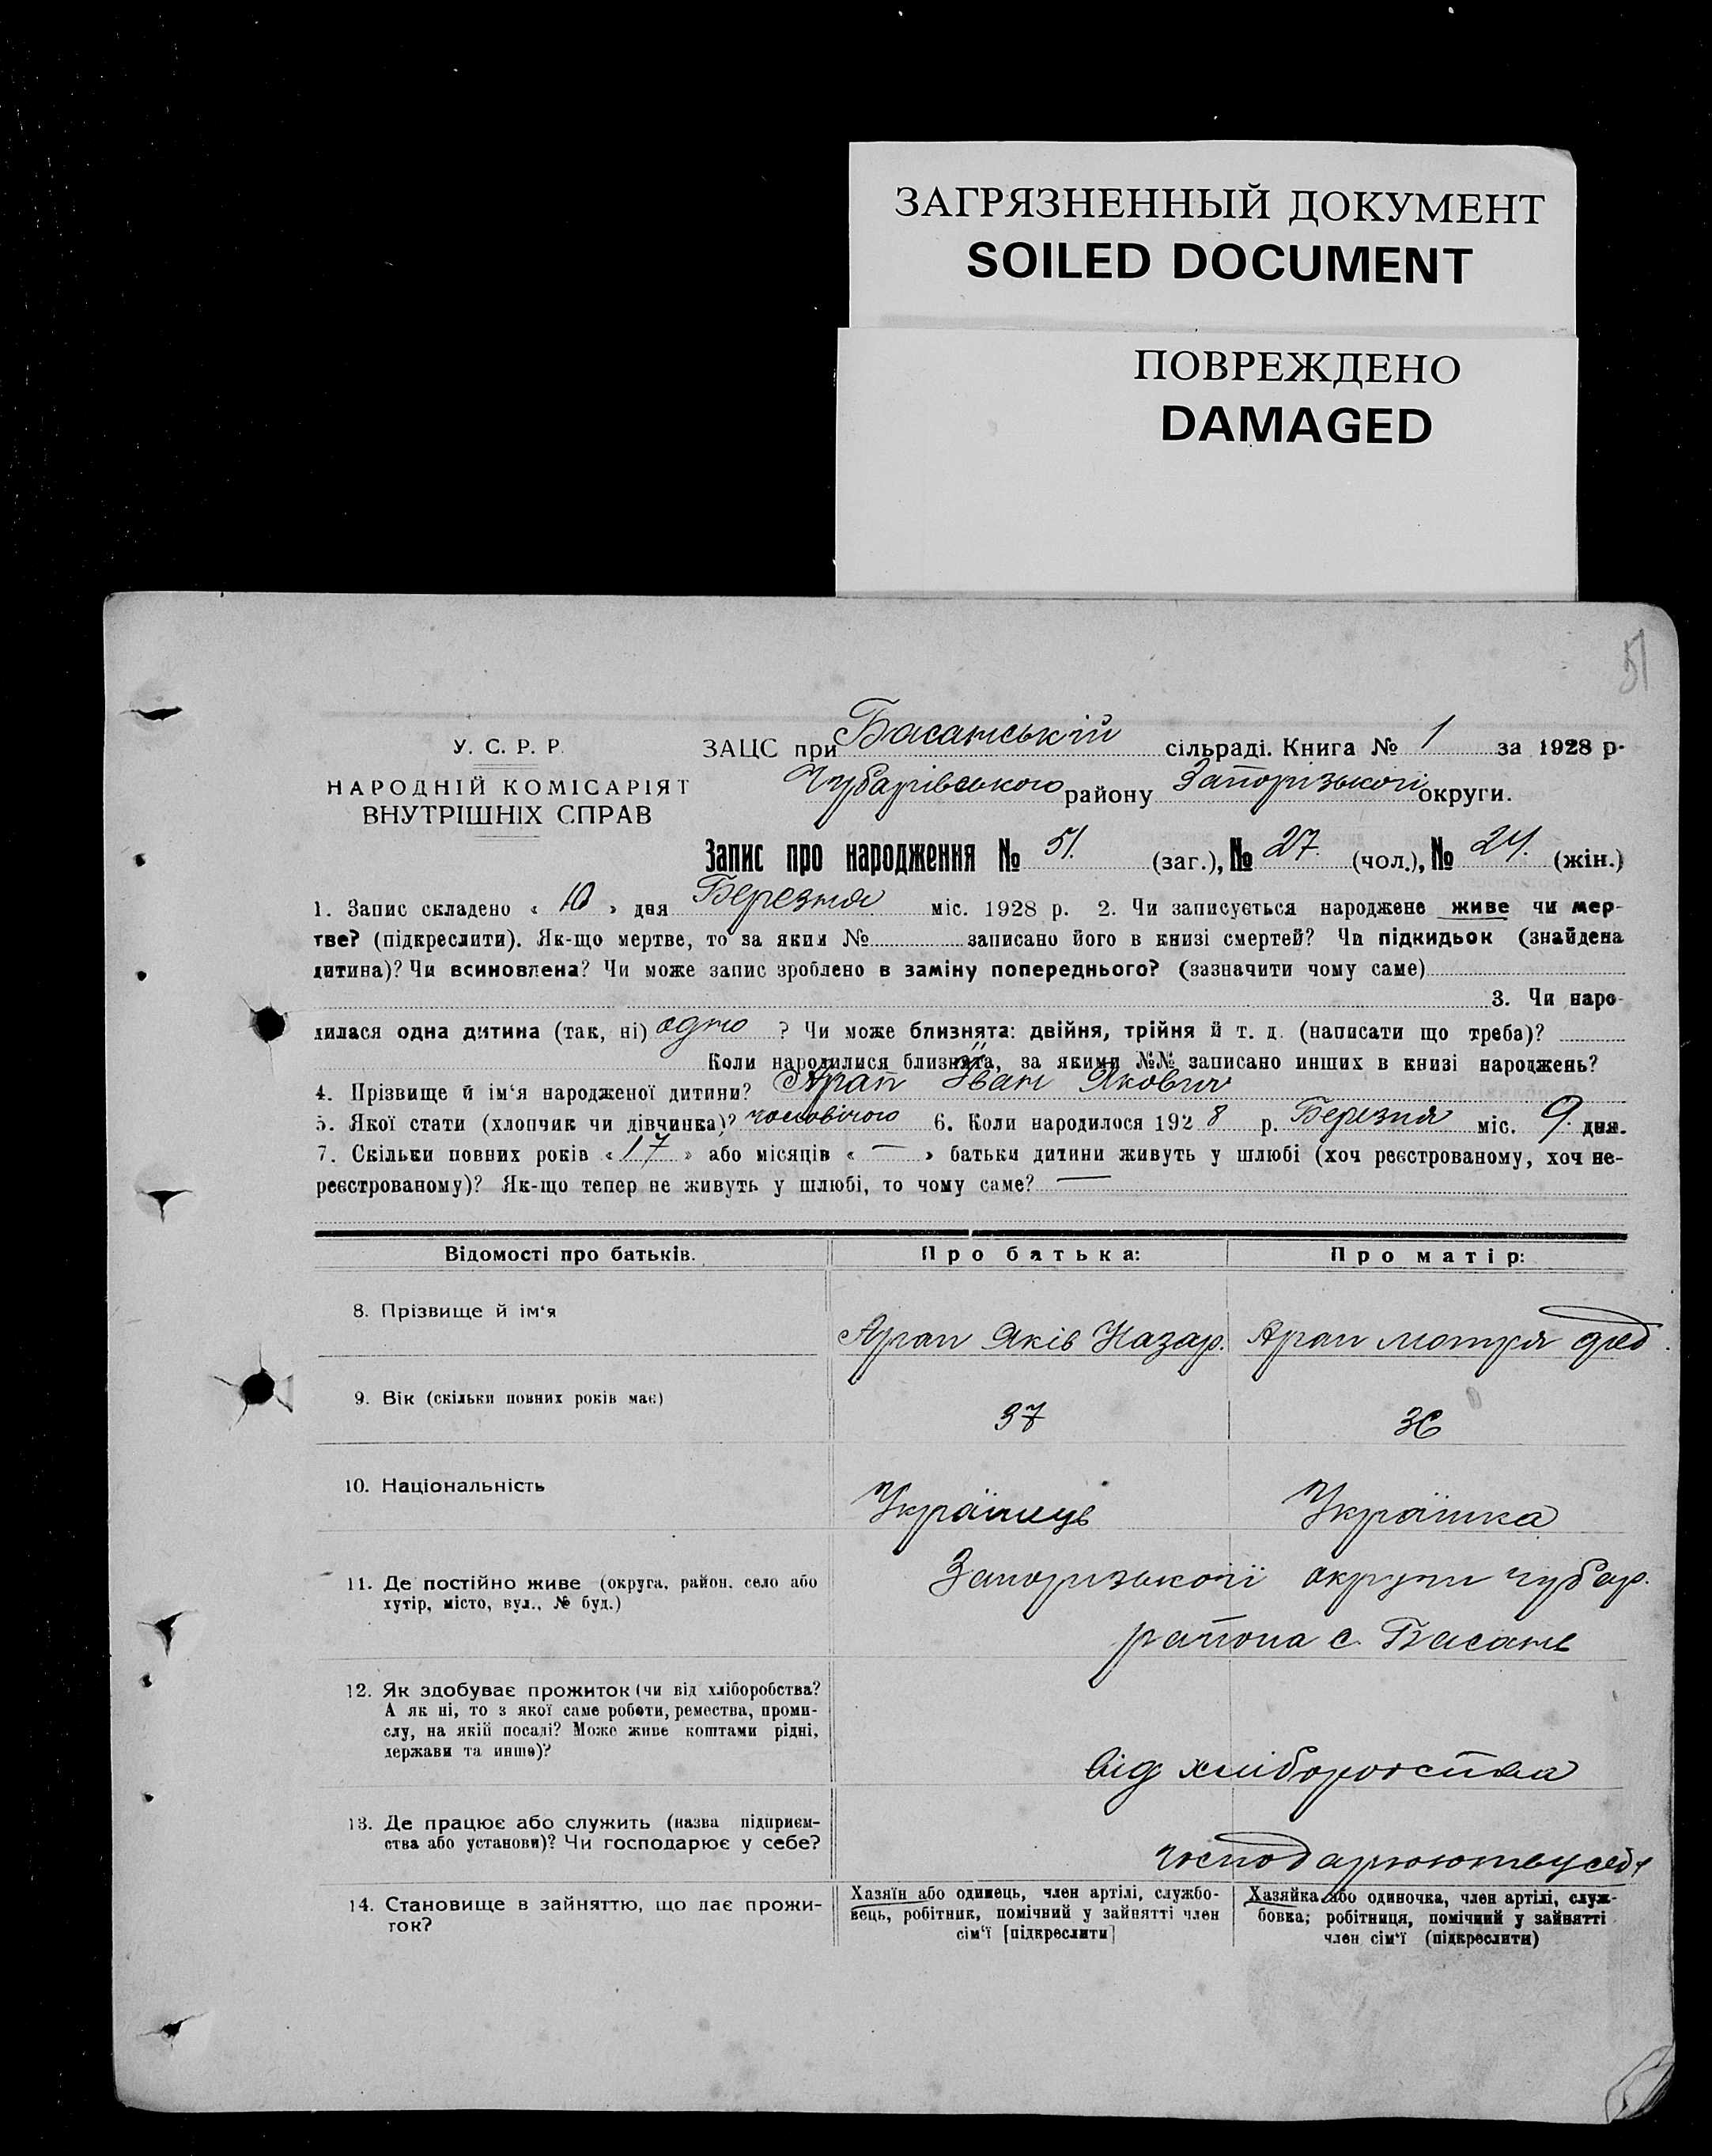 ЗАГРЯЗНЕННЫЙ ДОКУМЕНТ
SOILED DOCUMENT
ПОВРЕЖДЕНО
DAMAGED
51
У. С. Р. Р.
НАРОДНІЙ КОМІСАРІЯТ
ВНУТРІШНІХ СПРАВ
ЗАЦС при Басанській сільраді. Книга № 1 за 1928 р.
Чубарівського району Запоризької округи.
Запис про народження № 51. (заг.), № 27. (чол.), № 24. (жін.)
1. Запис складено « 10 » дня Березня міс. 1928 р. 2. Чи записується народжене живе чи мер-
тве? (підкреслити). Як-що мертве, то за яким № записано його в книзі смертей? Чи підкидьок (знайдена
дитина)? Чи всиновлена? Чи може запис зроблено в заміну попереднього? (зазначити чому саме)
3. Чи наро-
дилася одна дитина (так, ні) одно ? Чи може близнята: двійня, трійня й т. д. (написати що треба)?
Коли народилися близнята, за якими №№ записано инших в книзі народжень?
4. Прізвище й ім‘я народженої дитини? Арап Іван Якович
5. Якої стати (хлопчик чи дівчинка)? чоловічого 6. Коли народилося 1928 р. Березня міс. 9. дня.
7. Скільки повних років « 17 » або місяців « — » батьки дитини живуть у шлюбі (хоч реєстрованому, хоч не-
реєстрованому)? Як-що тепер не живуть у шлюбі, то чому саме? —
Відомості про батьків. Про батька: Про матір:
8. Прізвище й ім‘я
Арап Яків Назар. Арап Мотря Фед.
9. Вік (скільки повних років має)
37 36
10. Національність
Українець Українка
11. Де постійно живе (округа, район, село або
хутір, місто, вул., № буд.)
Запоризької округи Чубар.
района с. Басань
12. Як здобуває прожиток (чи від хліборобства?
А як ні, то з якої саме роботи, ремества, проми-
слу, на якій посаді? Може живе коштами рідні,
держави та инше)?
від хліборобства
13. Де працює або служить (назва підприєм-
ства або установи)? Чи господарює у себе?
господарюють у себя
14. Становище в зайняттю, що дає прожи-
ток?
Хазяїн або одинець, член артілі, службо-
вець, робітник, помічний у зайнятті член
сім‘ї [підкреслити]
Хазяйка або одиночка, член артілі, служ-
бовка; робітниця, помічний у зайнятті
член сім‘ї (підкреслити)